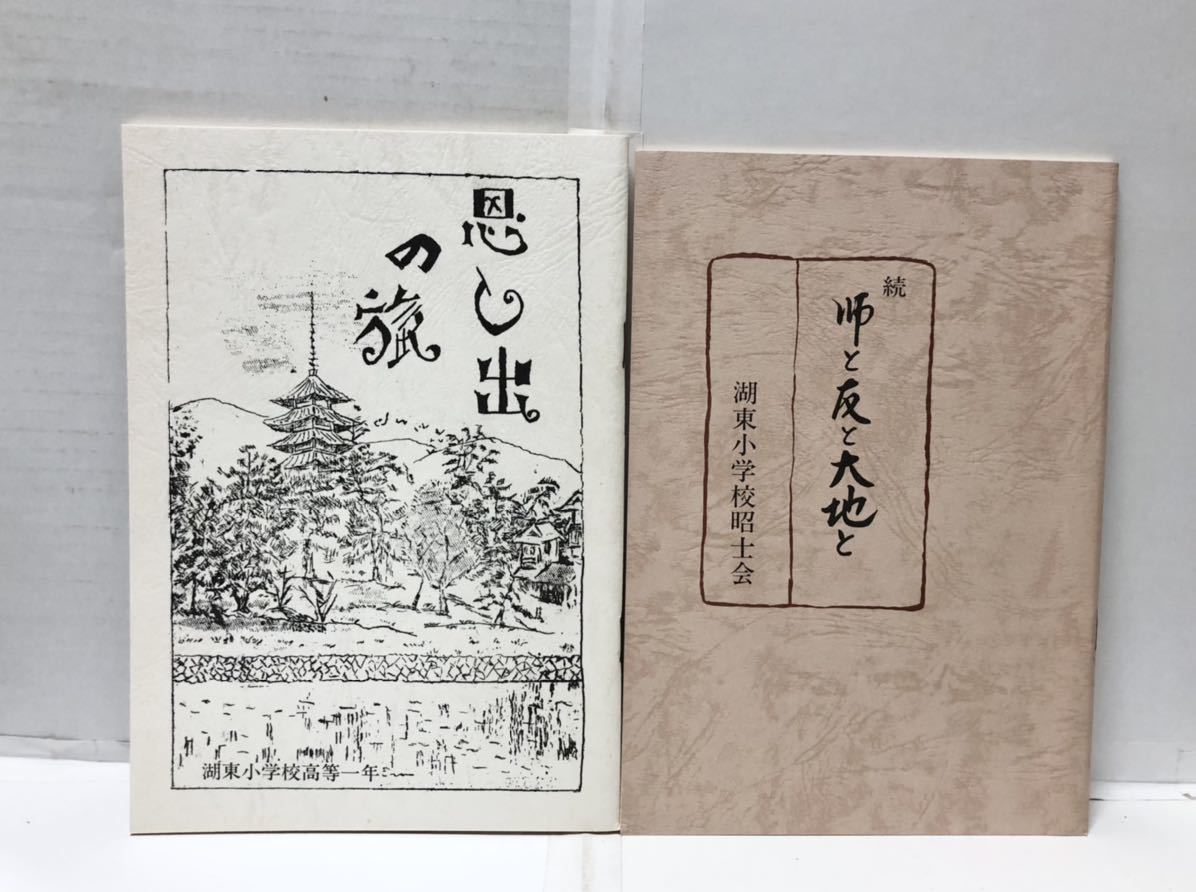 思し出
の旅
湖東小学校高等一年
続
师と友と大地と
湖東小学校昭士会